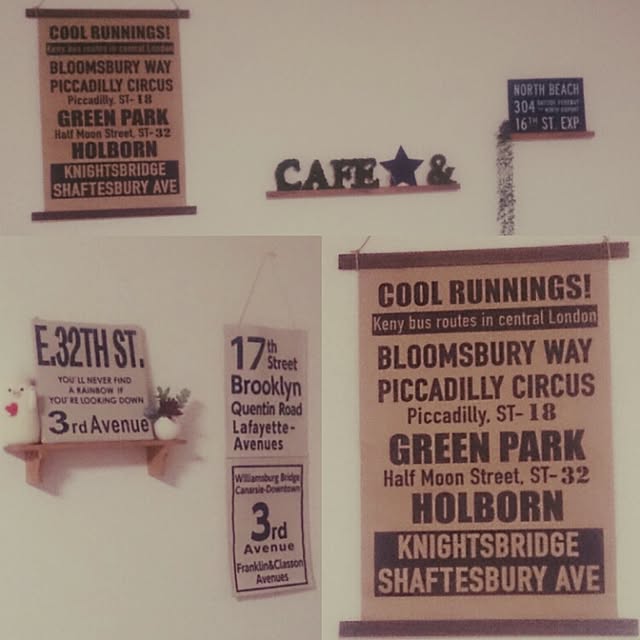 COOL RUNNINGS!
Keny bus routes in central London
BLOOMSBURY WAY
PICCADILLY CIRCUS
Piccadilly, ST-18
GREEN PARK
Half Moon Street, ST-32
HOLBORN
KNIGHTSBRIDGE
SHAFTESBURY AVE
CAFE &
NORTH BEACH
304
16TH ST. EXP
E.32TH ST.
YOU'LL NEVER FIND
A RAINBOW IF
YOU'RE LOOKING DOWN
3rd Avenue
17th
Street
Brooklyn
Quentin Road
Lafayette-
Avenues
Williamsburg Bridge
Canarsie-Downtown
3rd
Avenue
Franklin&Classon
Avenues
COOL RUNNINGS!
Keny bus routes in central London
BLOOMSBURY WAY
PICCADILLY CIRCUS
Piccadilly, ST-18
GREEN PARK
Half Moon Street, ST-32
HOLBORN
KNIGHTSBRIDGE
SHAFTESBURY AVE